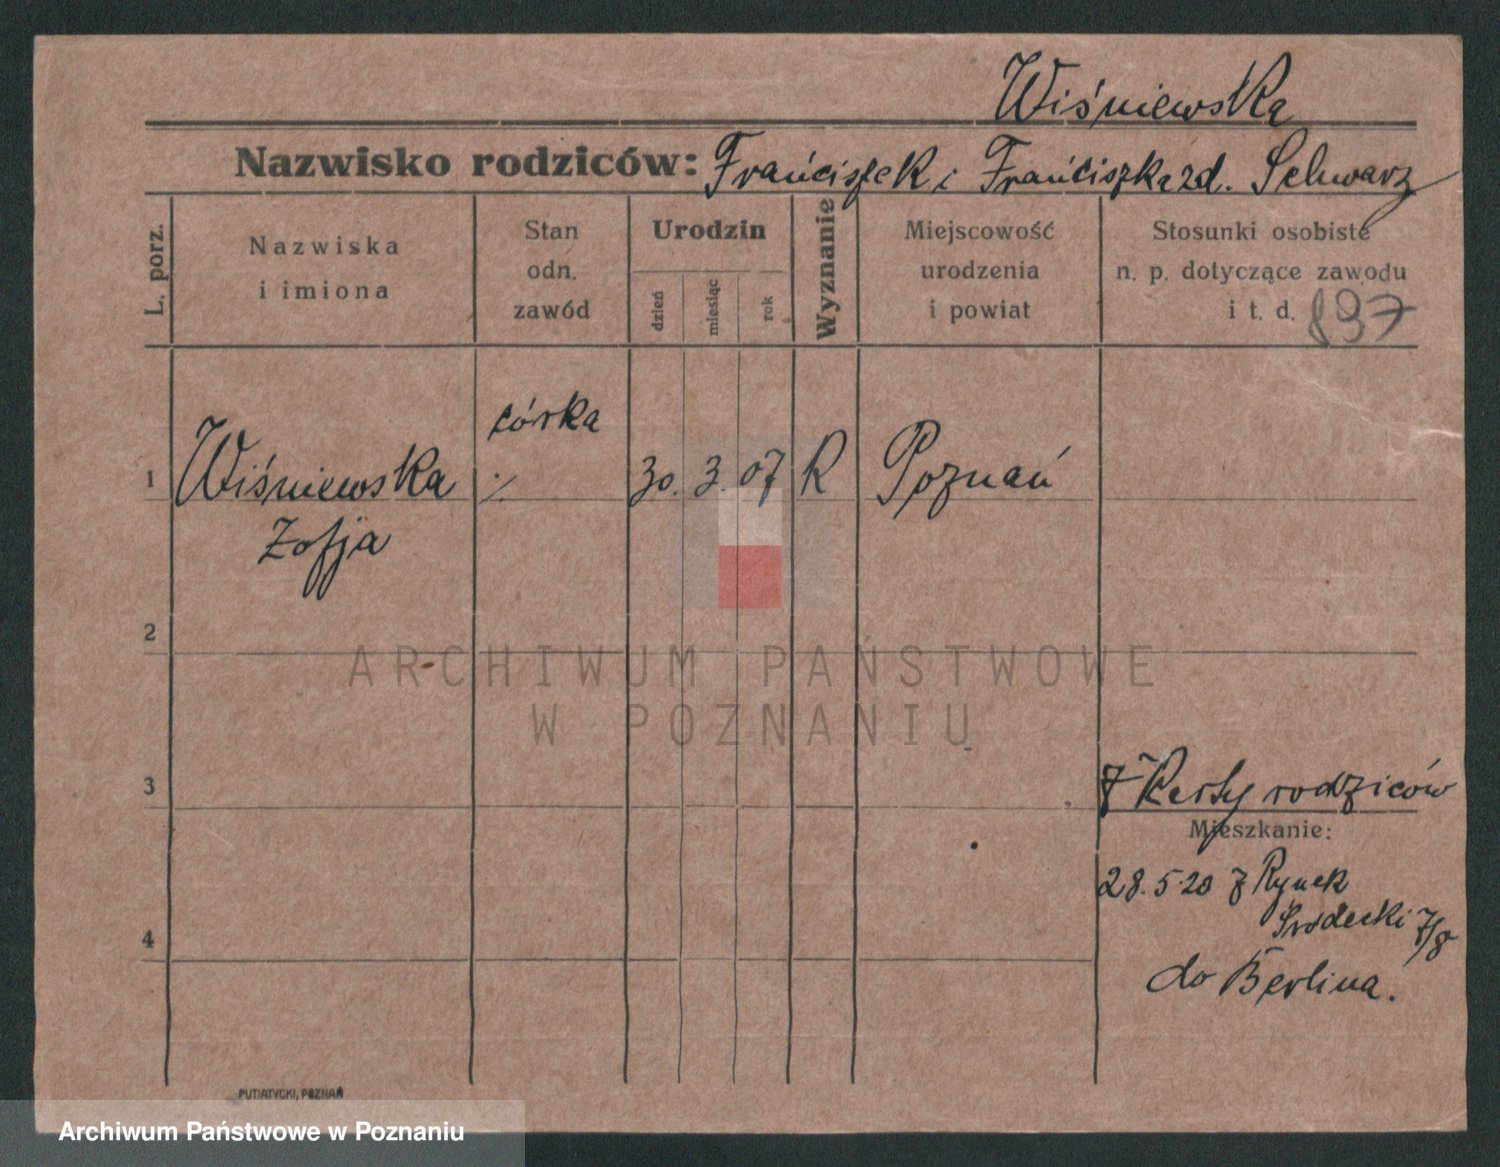 Wiśniewska
Nazwisko rodziców: Frańciszek i Frańciszka zd. Schwarz
L. porz.
Nazwiska
i imiona
Stan
odn.
zawód
Urodzin
dzień
miesiąc
rok
Wyznanie
Miejscowość
urodzenia
i powiat
Stosunki osobiste
n. p. dotyczące zawodu
i t. d.
897
córka
1 Wiśniewska ./. 30. 3. 07 R Poznań
Zofja
2
ARCHIWUM PAŃSTWOWE
W POZNANIU
3
rodziców
Mieszkanie:
28.5.20 z Rynek
Środecki 7/8
4
do Berlina.
PUTIATYCKI, POZNAŃ
Archiwum Państwowe w Poznaniu